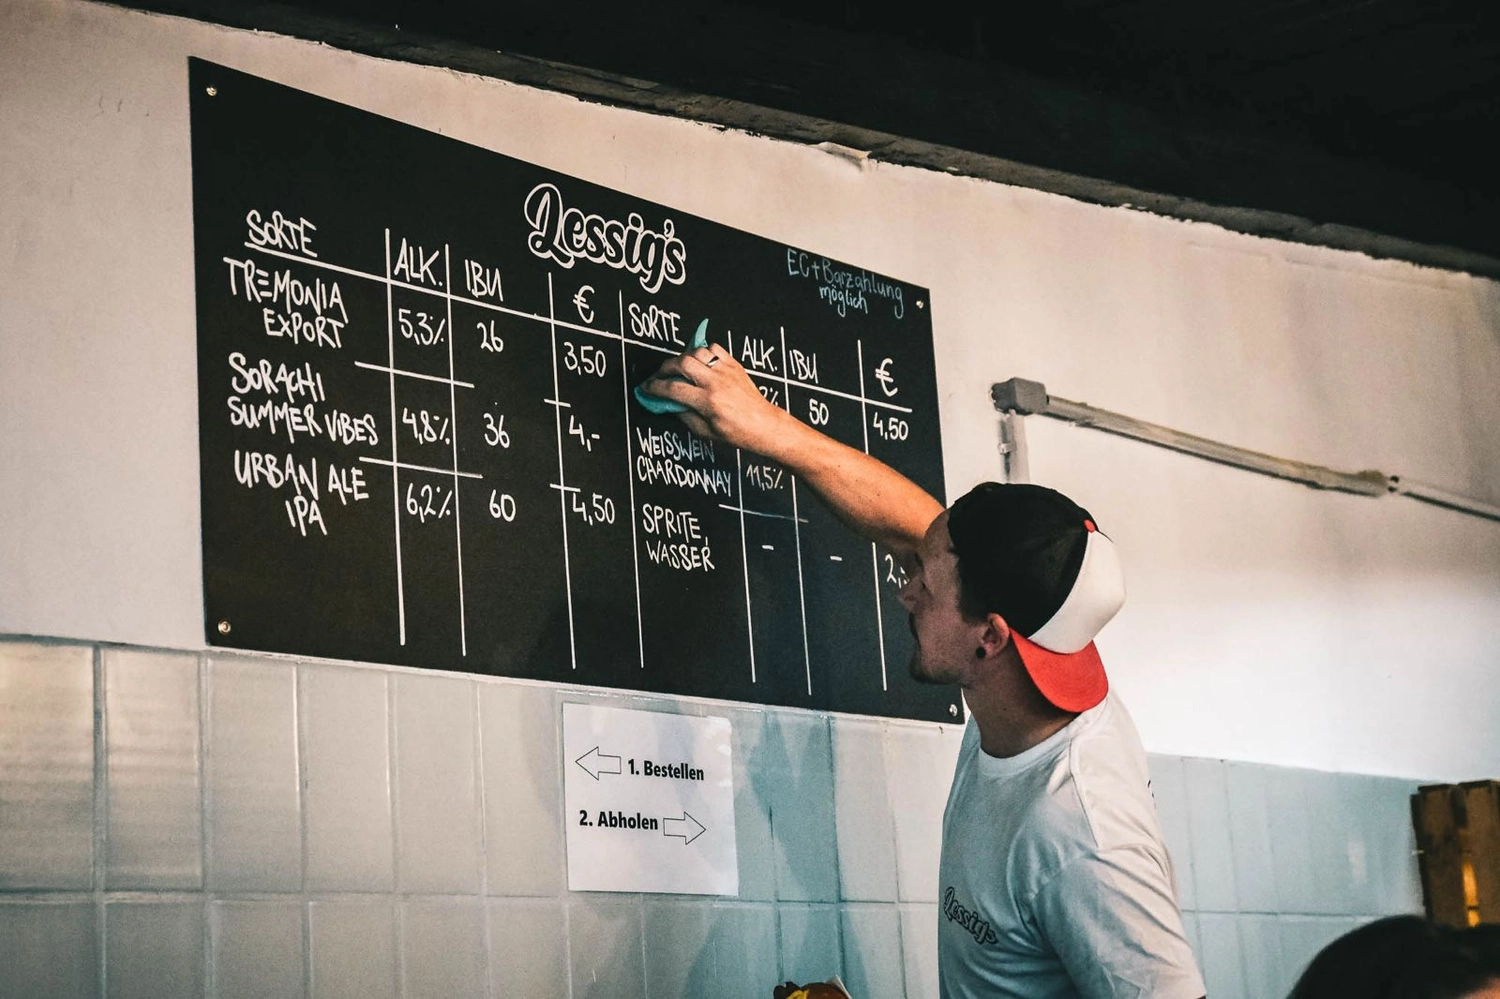 Lessig's
EC+Barzahlung
möglich
SORTE ALK. IBU €
TREMONIA
EXPORT 5,3% 26 3,50
SORACHI
SUMMER VIBES 4,8% 36 4,-
URBAN ALE
IPA 6,2% 60 4,50
SORTE ALK. IBU €
50 4,50
WEISSWEIN
CHARDONNAY 11,5%
SPRITE,
WASSER - -
1. Bestellen
2. Abholen
Lessig's